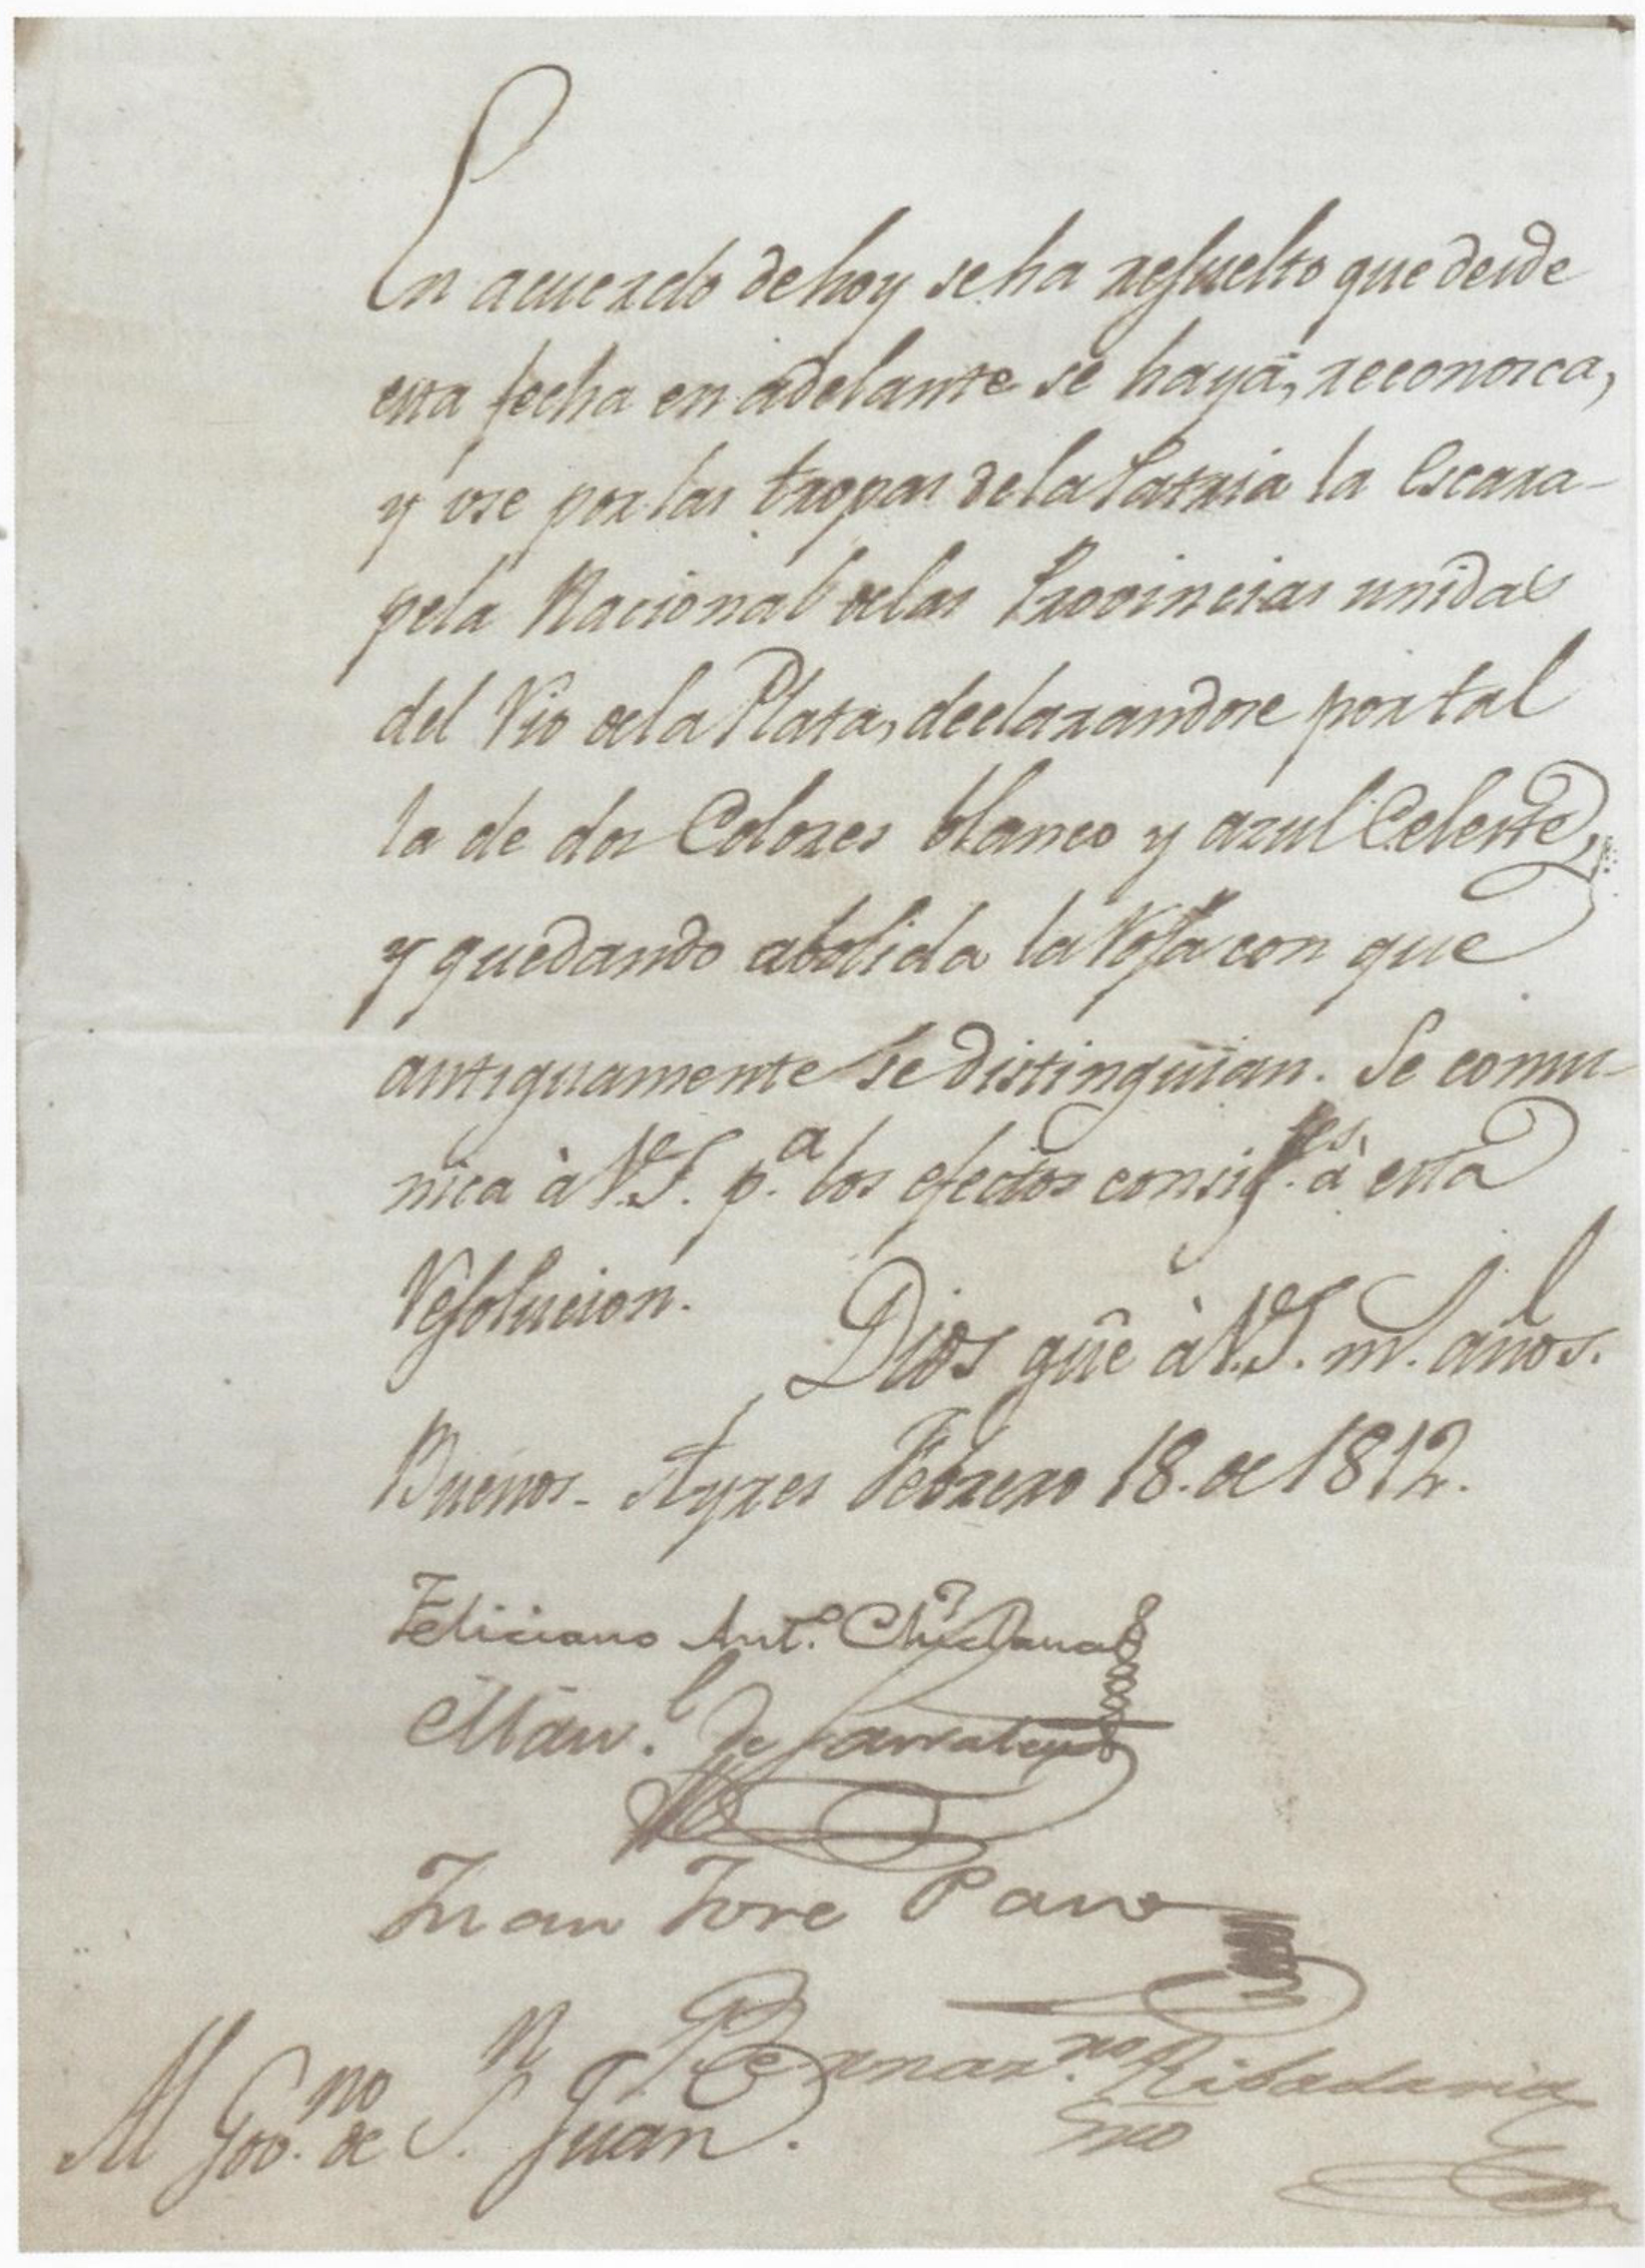 En acuerdo de hoy se ha resuelto que desde
esta fecha en adelante se haya, reconosca,
y use por las tropas de la Patria la Escara-
pela Nacional de las Provincias unidas
del Rio de la Plata, declarandose por tal
la de dos Colores blanco y azul Celeste,
y quedando abolida la Roja con que
antiguamente se distinguian. Se comu-
nica à V.S. p.a los efectos consig.tes à esta
Resolucion.
Dios gûe à V.S. m.s años.
Buenos-Ayres Febrero 18. de 1812.
Feliciano Ant.o Chiclana
Man.l de Sarratea
Juan Jose Paso
Bernar.no Ribadavia
Srio
Al Gov.no de S.n Juan.